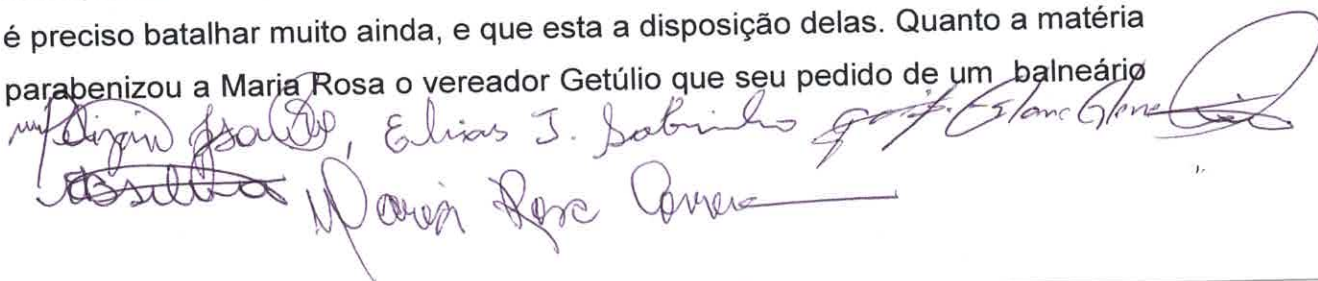 é preciso batalhar muito ainda, e que esta a disposição delas. Quanto a matéria
parabenizou a Maria Rosa o vereador Getúlio que seu pedido de um balneário
Elias J. Sobrinho
Maria Rosa Correa